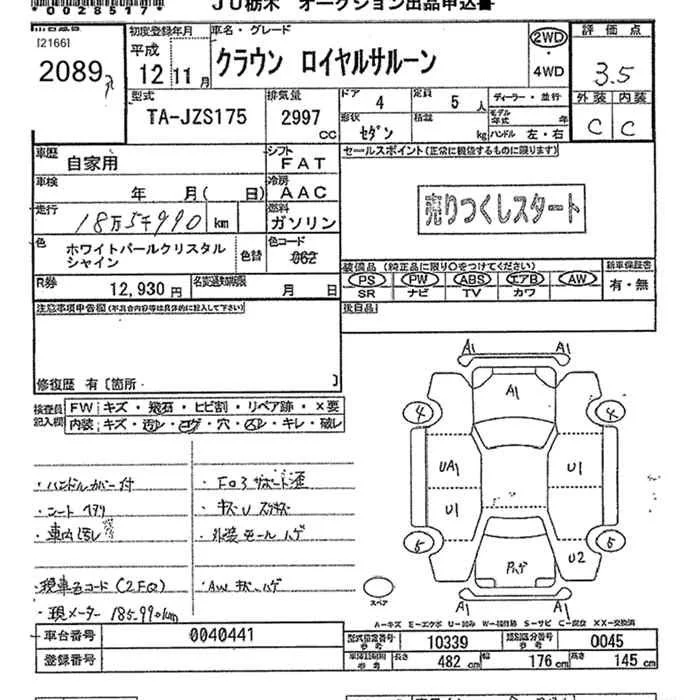 *0028517*
JU栃木 オークション出品申込書
[2166]
2089
初度登録年月
平成
12 11 月
車名・グレード
クラウン ロイヤルサルーン
2WD
・
4WD
評価点
3.5
外装 内装
C C
型式
TA-JZS175
排気量
2997
cc
ドア
4
定員
5 人
形状
セダン
積載
kg
ディーラー・並行
モデル年式 年
ハンドル 左・右
車歴
自家用
シフト
FAT
車検
年 月( 日)
冷房
AAC
走行
18万5千990 km
燃料
ガソリン
色
ホワイトパールクリスタル
シャイン
色替
色コード
062
R券
12,930 円
名変期限
月 日
セールスポイント(正常に機能するものに限ります)
売りつくしスタート
装備品(純正品に限り○をつけてください)
PS PW ABS エアB AW
SR ナビ TV カワ
新車保証書
有・無
後日品
注意事項申告欄(不具合内容等は具体的に記入して下さい)
修復歴 有〔箇所・ 〕
検査員
記入欄
FW キズ・飛石・ヒビ割・リペア跡・X要
内装 キズ・汚レ・コゲ・穴・スレ・キレ・破レ
・ハンドルカバー付
・シート ヘタリ
・車内汚レ
・現車色コード(2FQ)
・現メーター 185.990km
・キズU スリキズ
・外装モール ハゲ
・AW キズ・ハゲ
A1 A1
A1
4 4
UA1 U1
U1
U2
5 5
Pハゲ
A1 A1
スペア
A-キズ E-エクボ U-凹み W-補修跡 S-サビ C-腐食 XX-交換済
車台番号
0040441
登録番号
型式指定番号
参考
10339
類別区分番号
参考
0045
長さ 482 cm
幅 176 cm
高さ 145 cm